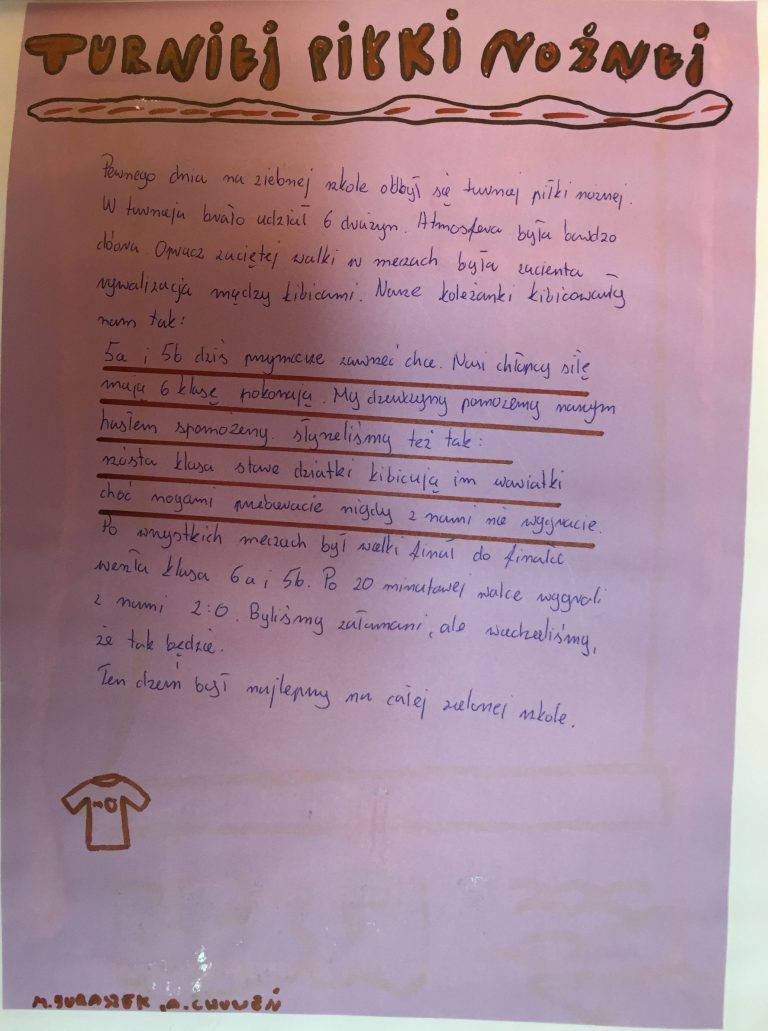 TURNIEJ PIŁKI NOŻNEJ
Pewnego dnia na zielonej szkole odbył się turniej piłki nożnej.
W turnieju brało udział 6 drużyn. Atmosfera była bardzo
dobra. Oprócz zaciętej walki w meczach była zacienta
rywalizacja między kibicami. Nasze koleżanki kibicowały
nam tak:
5a i 5b dziś przymierze zawrzeć chce. Nasi chłopcy siłę
mają 6 klasę pokonają. My dziewczyny pomożemy naszym
hasłem spomożemy. słyszeliśmy też tak:
szósta klasa stare dziatki kibicują im wariatki
choć nogami przebieracie nigdy z nami nie wygracie.
Po wszystkich meczach był wielki finał do finału
weszła klasa 6a i 5b. Po 20 minutowej walce wygrali
z nami 2:0. Byliśmy załamani, ale wiedzieliśmy,
że tak będzie.
Ten dzień był najlepszy na całej zielonej szkole.
M. JURASZEK, A. CHUWEŃ